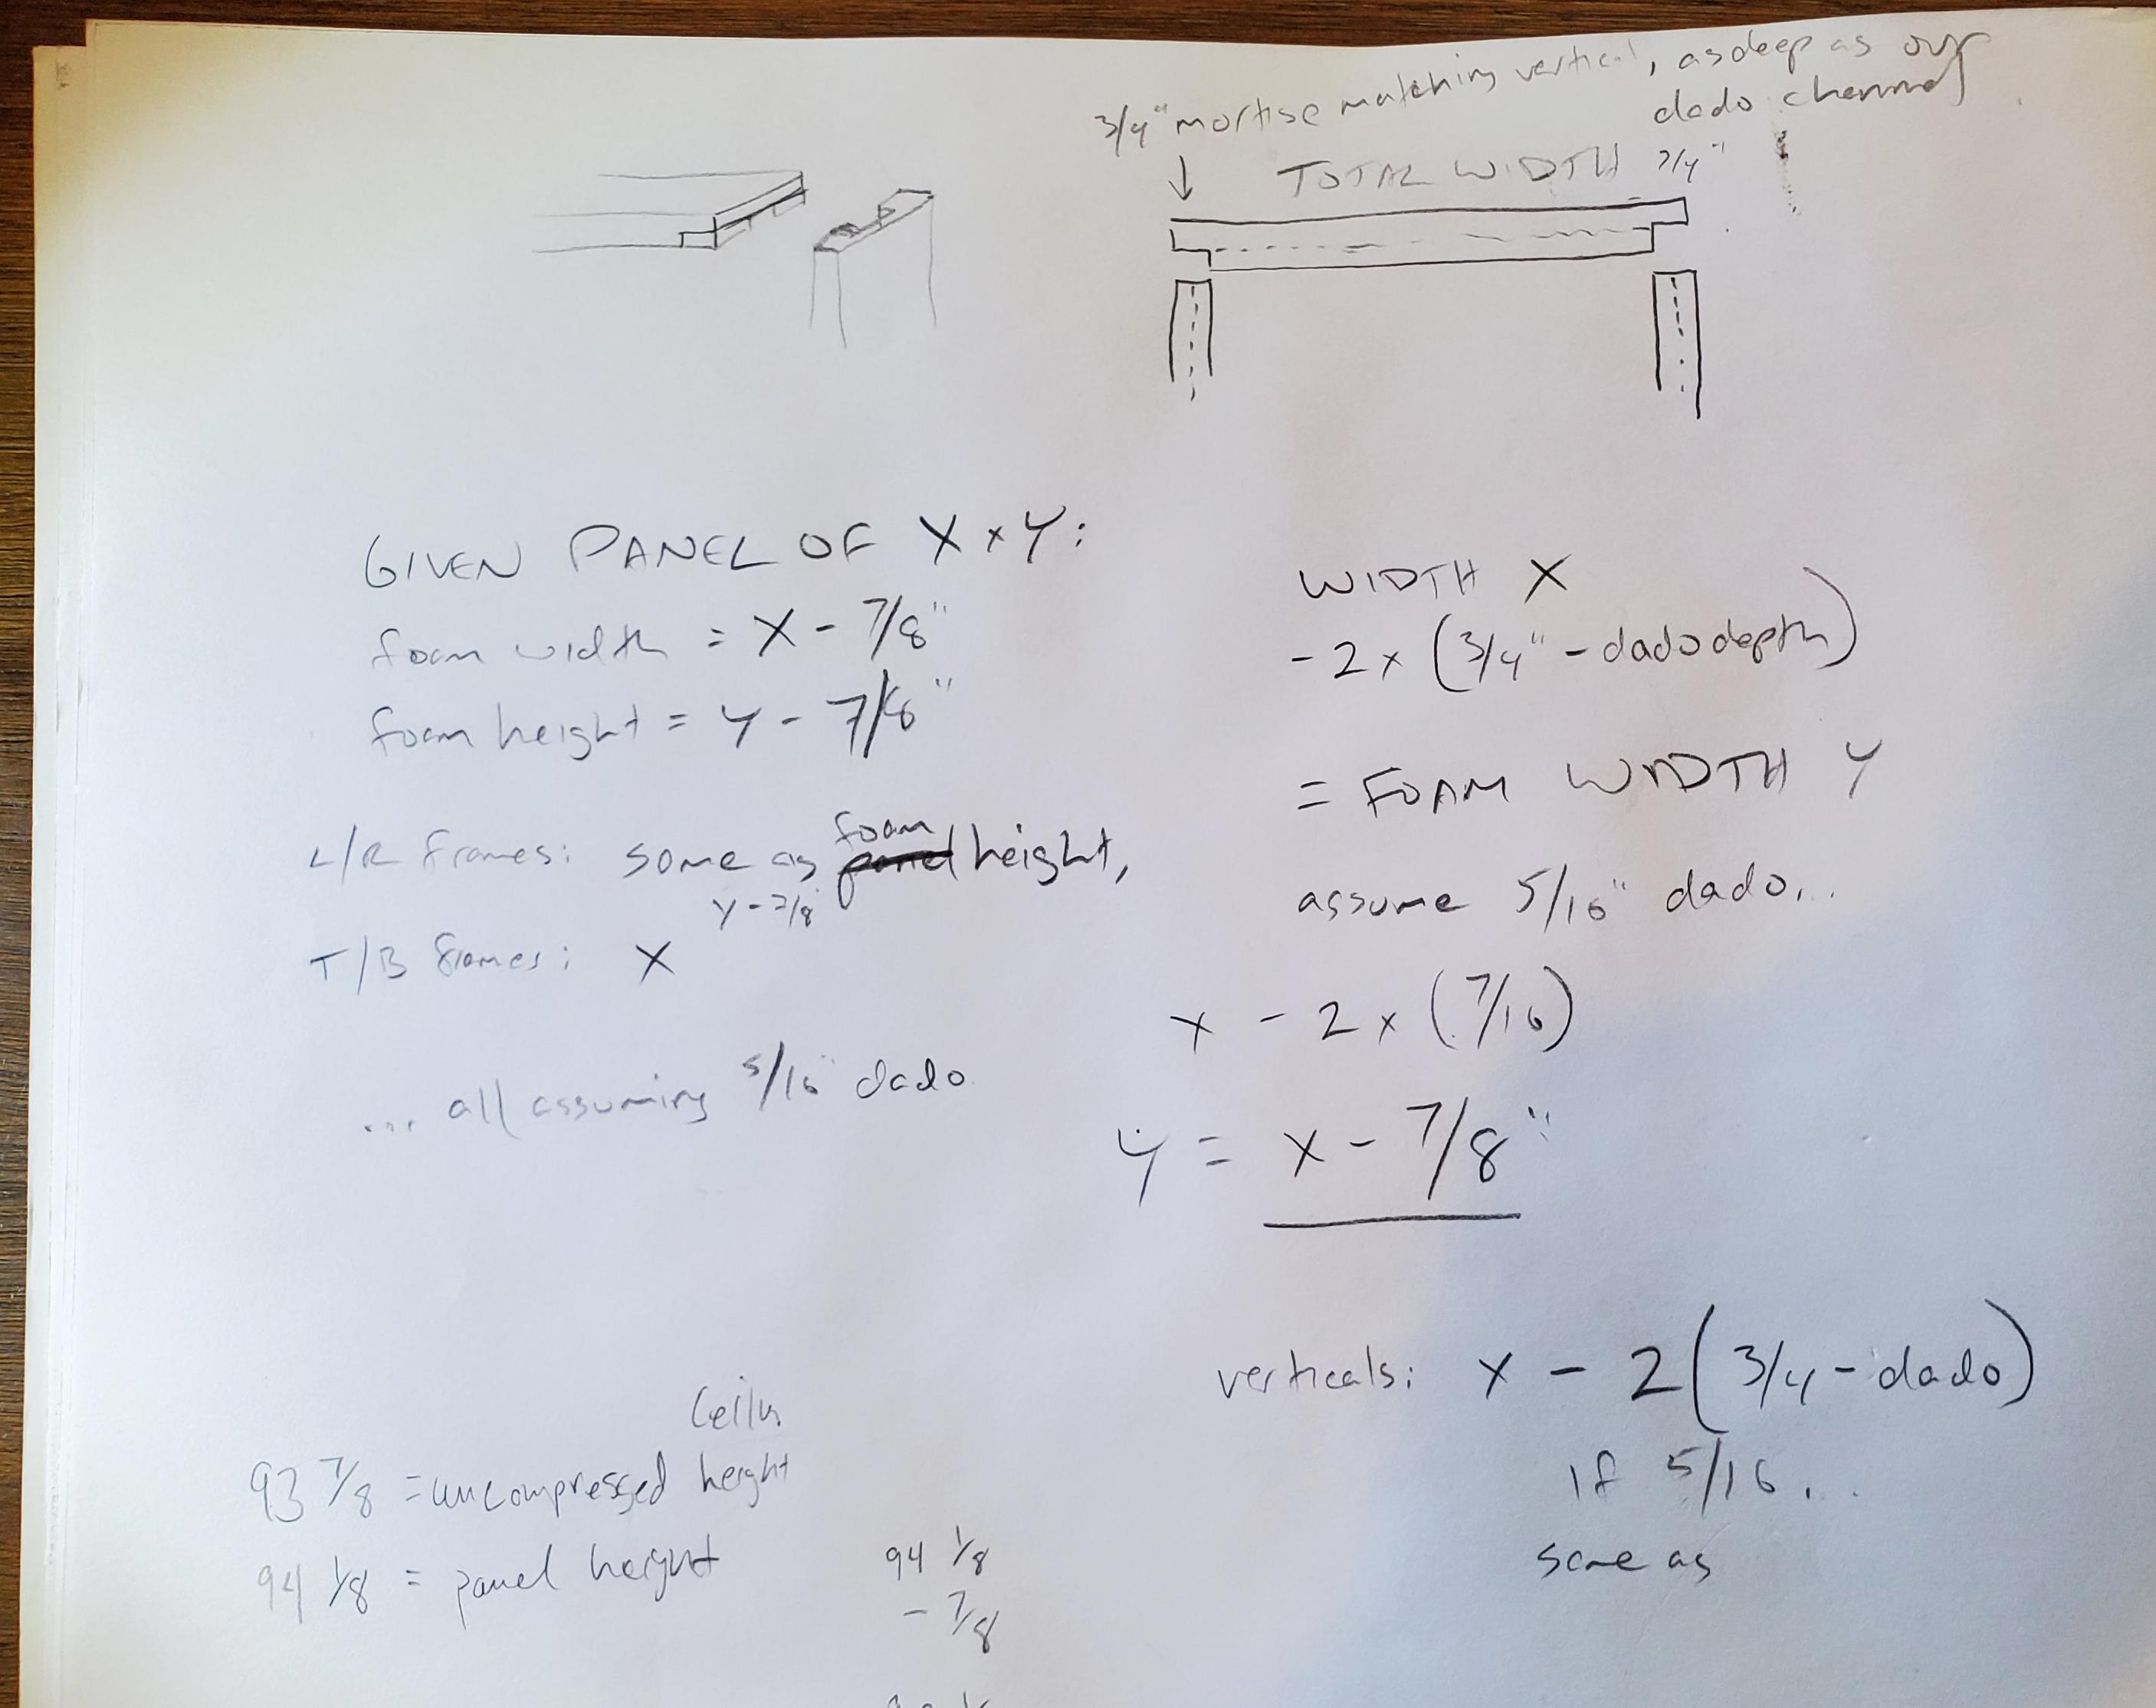 3/4" mortise matching vertical, as deep as our
dado channel
TOTAL WIDTH 3/4"
GIVEN PANEL OF X x Y:
foam width = X - 7/8"
foam height = Y - 7/8"
L/R frames: same as foam height,
Y - 7/8
T/B frames: X
... all assuming 5/16" dado
WIDTH X
- 2 x (3/4" - dado depth)
= FOAM WIDTH Y
assume 5/16" dado...
x - 2 x (7/16)
y = x - 7/8"
verticals: x - 2(3/4 - dado)
if 5/16...
same as
93 7/8 = uncompressed height
94 1/8 = panel height
94 1/8
- 7/8